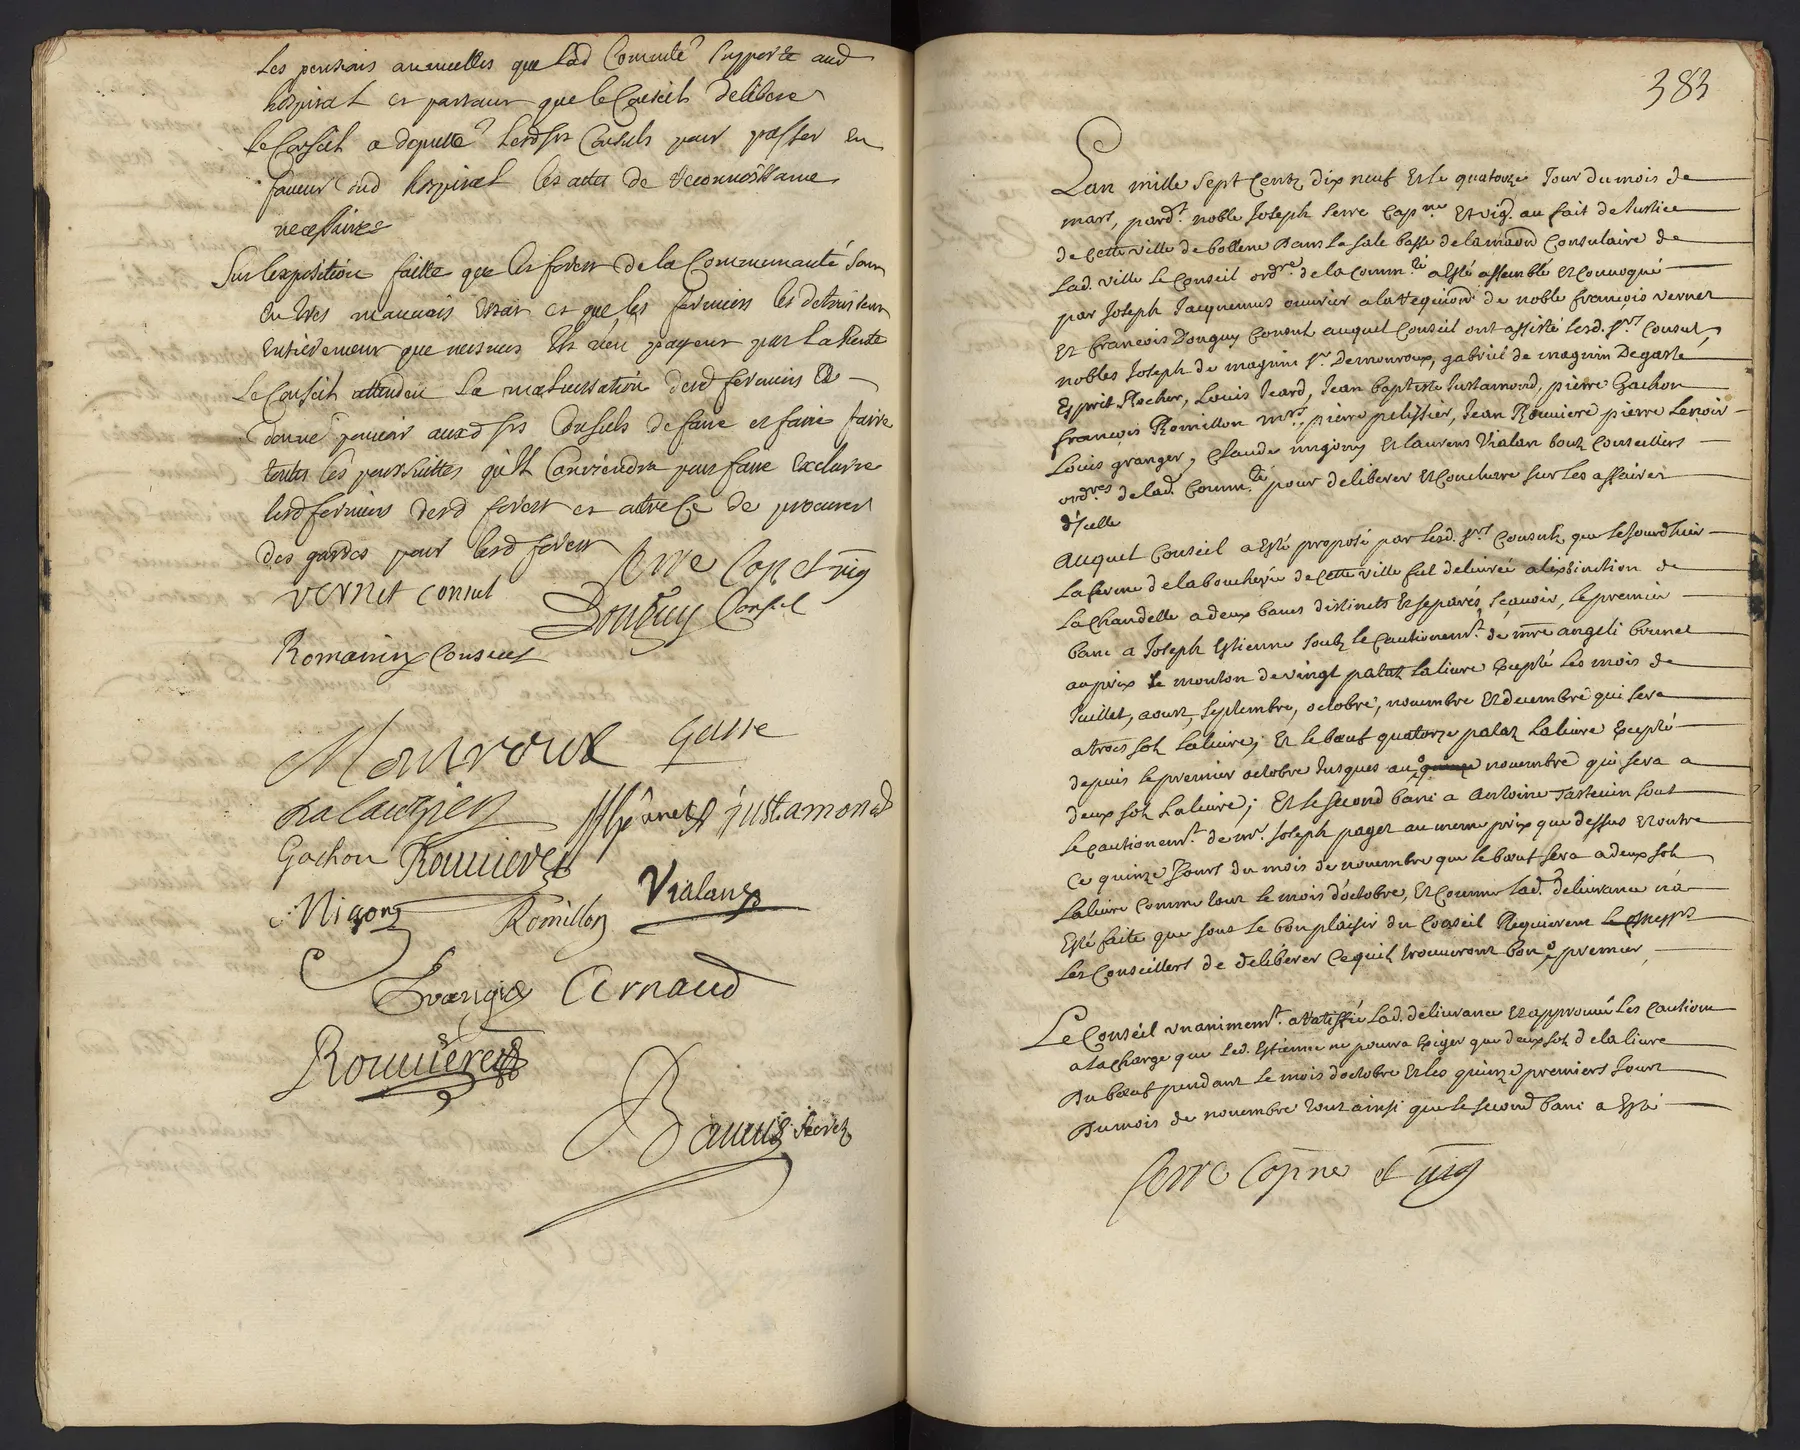 les pensions annuelles que lad Comuté supporte aud
hospital et partant que le Conseil delibere
le Conseil a deputté lesd srs Consuls pour passer en
faveur dud hospital les actes de reconnoissance
necessaires
Sur lexposition faitte que les forest de la Communauté sont
en tres mauvais estat et que les fermiers les detruisent
entierement que mesmes
le Conseil attendeu la malversation desd fermiers
donné pouvoir auxd srs Consuls de faire et faire faire
toutes les poursuittes qu'il Conviendra pour faire exclurre
lesd fermiers desd forest et a de procurer
des gardes pour lesd forest
Serre Cap et vig
vernet consul
Donguy Consul
Romanin Consul
Monroux
Gaste
Gachon
Justamond
Roumieres
Vialans
Migon
Romillon
Arnaud
Roumieres
Secret
383
Lan mille sept Centz dix neuf et le quatorze Jour du mois de
mars, pard.t noble Joseph Serre Cap.ne et vig. au fait de Justice
de Cette ville de bollene dans la sale basse de la maon Consulaire de
Lad. ville le Conseil ord.re de la Comm.té a esté assemblé et Convoqué
par Joseph Jacquemus ouvrier a la requion de noble francois vernet
et francois Donguy Consul auquel Conseil ont assisté lesd. s.rs Consul
nobles Joseph de magnin s.r Demonroux, gabriel de magnin Degaste
Esprit Rocher, Louis Icard, Jean baptiste Justamond, pierre Gachon
francois Romillon m.rs pierre pelissier, Jean Roumiere pierre Lenoir
Louis granger, Claude migony et laurens Vialan touts Conseillers
ord.res de lad. Comm.té pour deliberer et Conclurre sur les affaires
d'icelle
auquel Conseil a esté proposé par lesd. s.rs Consuls que le Jourdhier
La ferme de la boucherie de Cette ville fut delivrée a lextinction de
La chandelle a deux bancs distincts et separés, scavoir, le premier
banc a Joseph Estienne soubz le Cautionem.t de mre angeli brunet
au prix le mouton de vingt patatz la livre Excepté les mois de
Juillet, aoust, septembre, octobre, novembre et decembre qui sera
a trois solz la livre; et le bœuf quatorze patatz la livre Excepté
depuis le premier octobre Jusques au novembre qui sera a
deux solz la livre; et le second banc a antoine sout
le Cautionem.t de m.r Joseph pager au meme prix que dessus et outre
Ce quinze Jours du mois de novembre que le bœuf sera a deux solz
La livre Comme tout le mois d'octobre, et Comme lad.e delivrance na
Esté faite que sous le bon plaisir du Conseil Requierent
Les Conseillers de deliberer Ce quil trouveront bon premier
Le Conseil unanimem.t a ratiffié lad. delivrance et approuvé les Caution
a la charge que led. Estienne ne pourra exiger que deux solz de la livre
du bœuf pendant le mois d'octobre et les quinze premiers Jours
du mois de novembre tout ainsi que le second banc a Esté
Serre Capne et vig